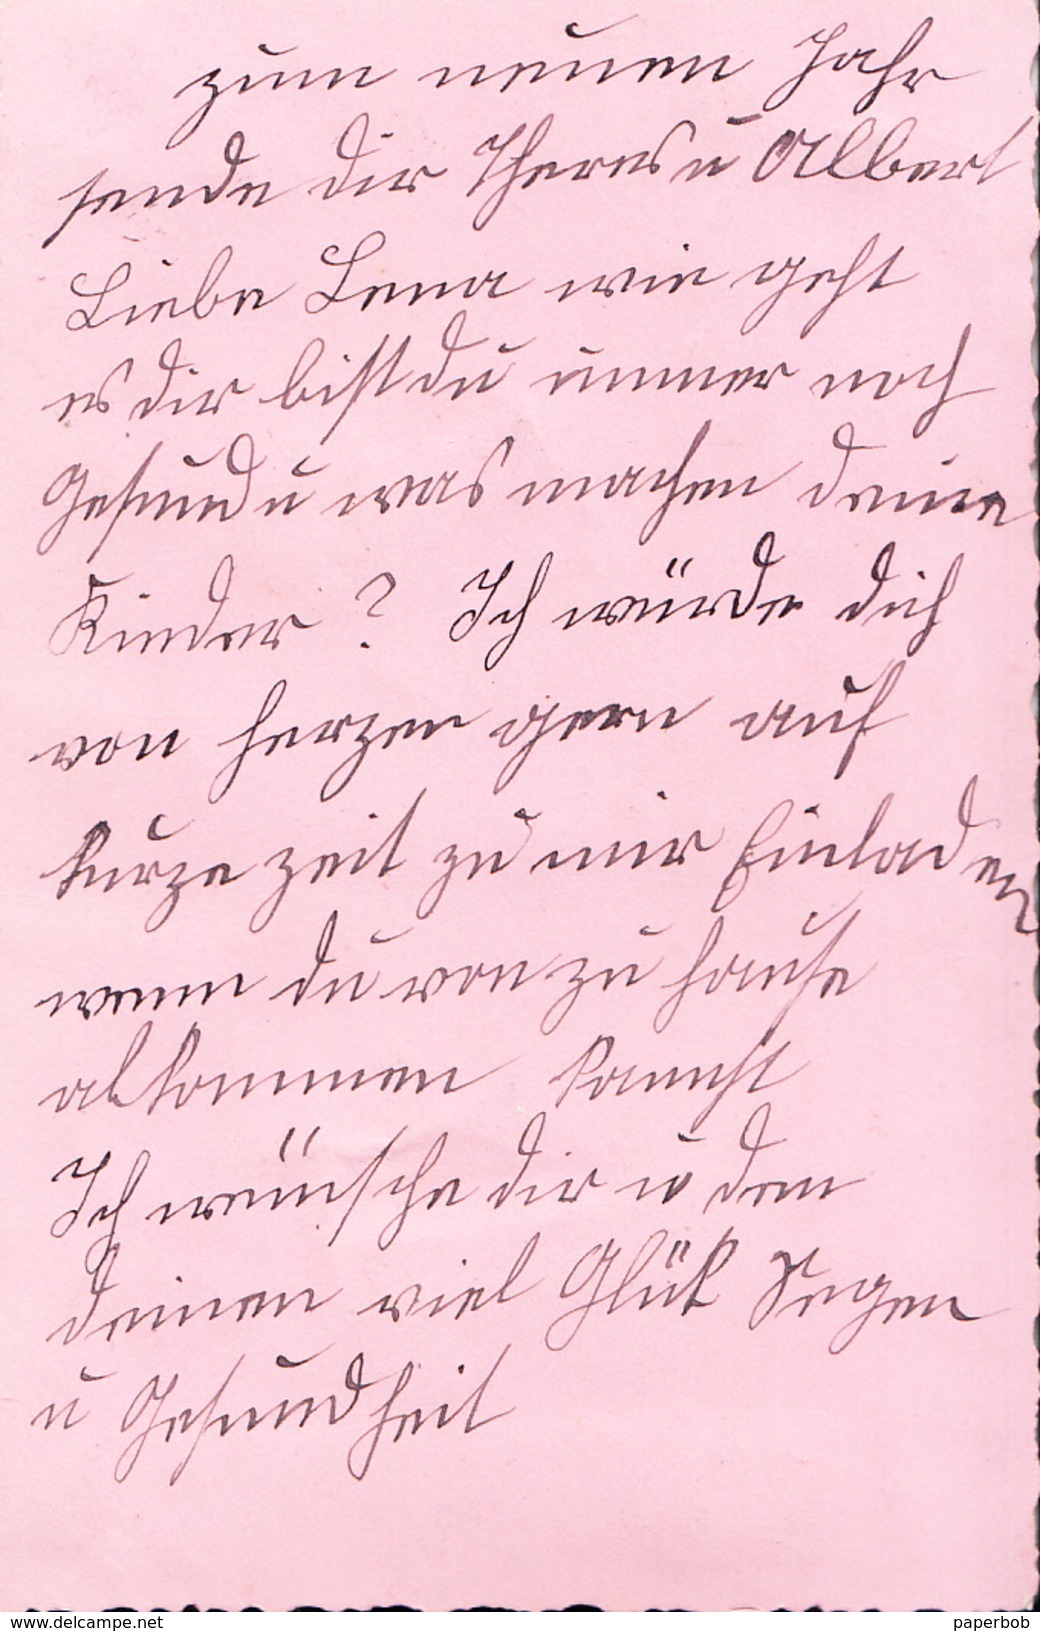 zum neuen Jahr
sende dir Theres u Albert
Liebe Lena wie geht
es dir bist du immer noch
Gesund u was machen deine
Kinder? Ich würde dich
von herzen gern auf
kurze zeit zu mir Einladen
wenn du von zu hause
abkommen kannst
Ich wünsche dir u den
deinen viel Glük Segen
u Gesundheit
www.delcampe.net
paperbob